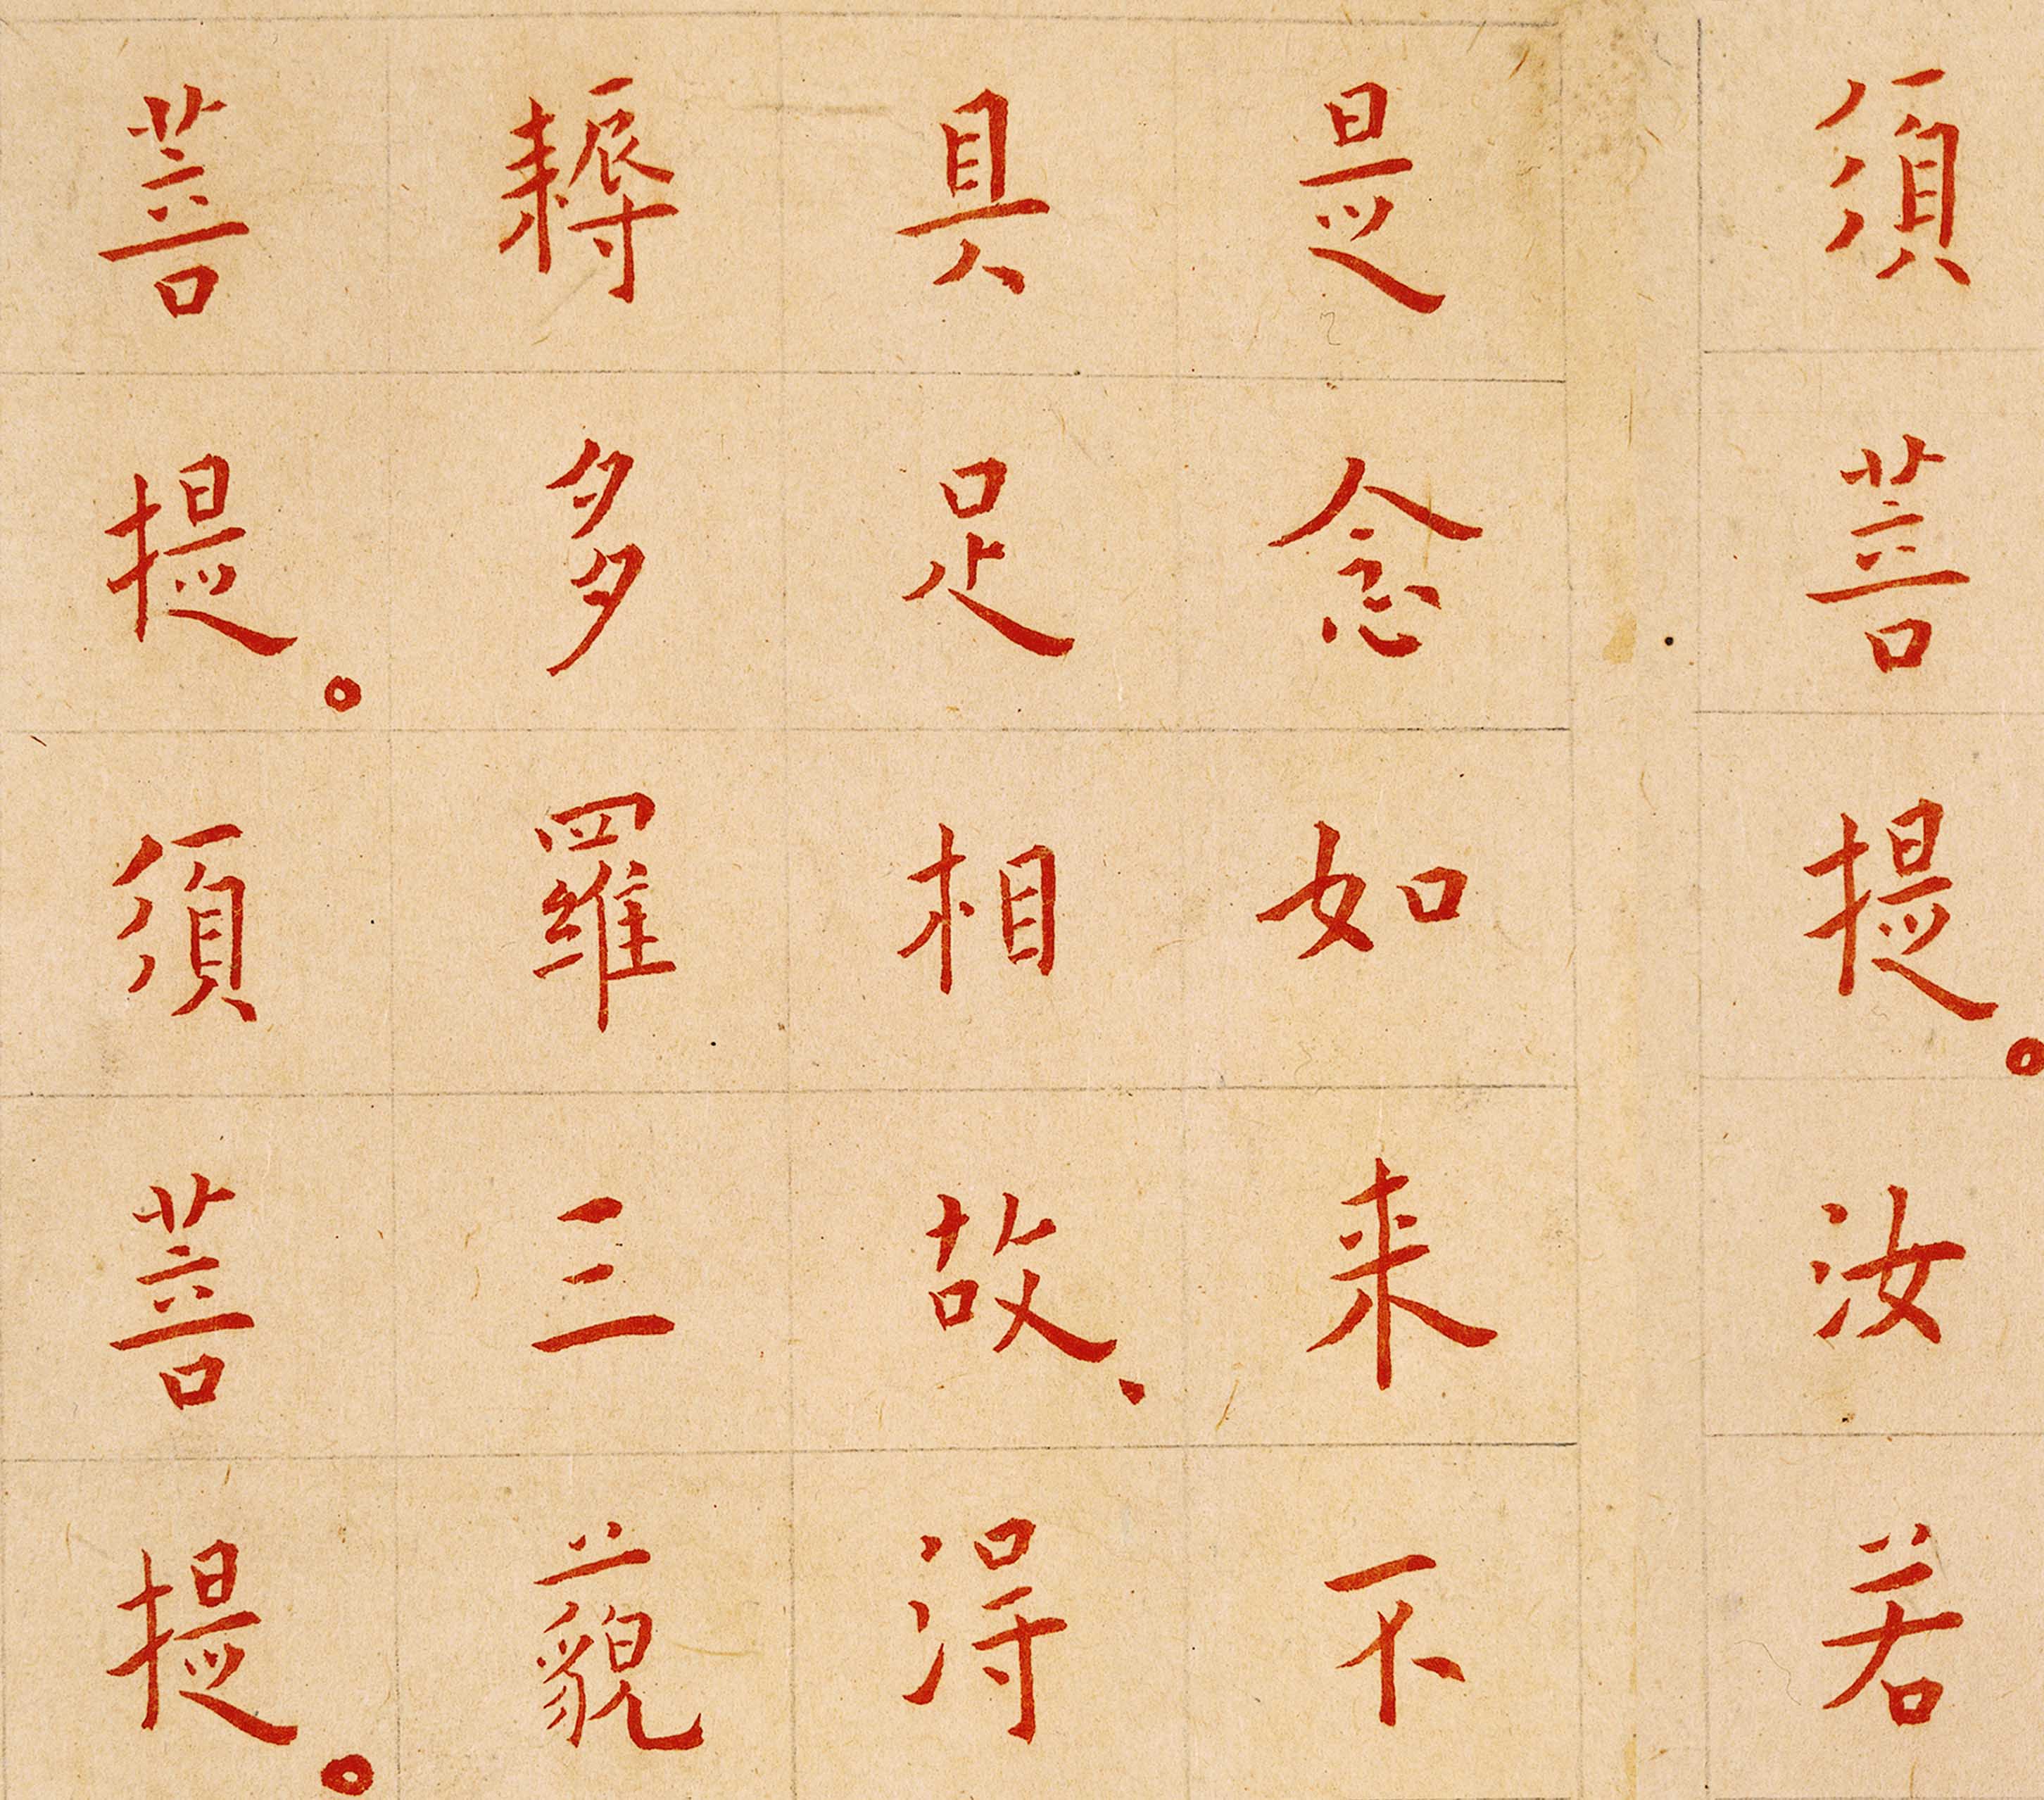 須菩提。汝若
是念如来不
具足相故、得
耨多羅三藐
菩提。須菩提。